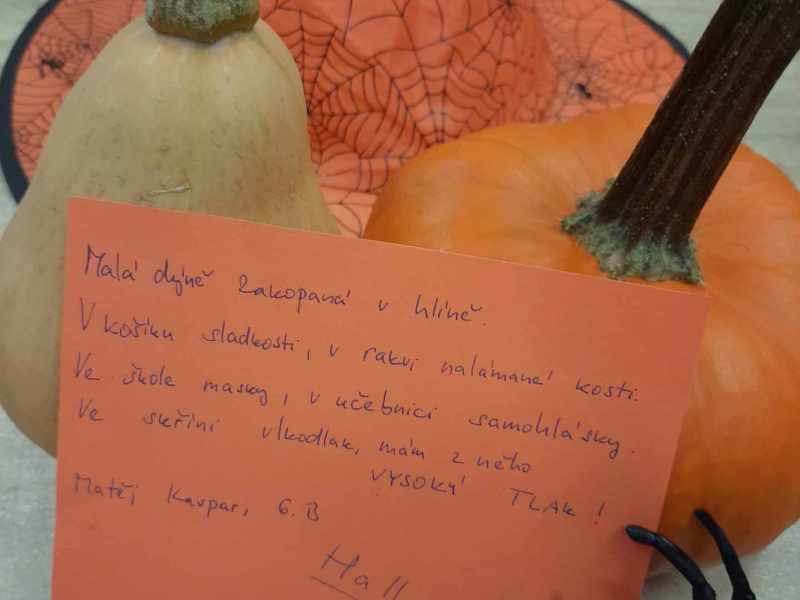 Malá dýně zakopaná v hlíně.
V košíku sladkosti, v rakvi nalámané kosti.
Ve škole masky, v učebnici samohlásky.
Ve skříni vlkodlak, mám z něho
VYSOKÝ TLAK!
Matěj Kaspar, 6.B
Hall